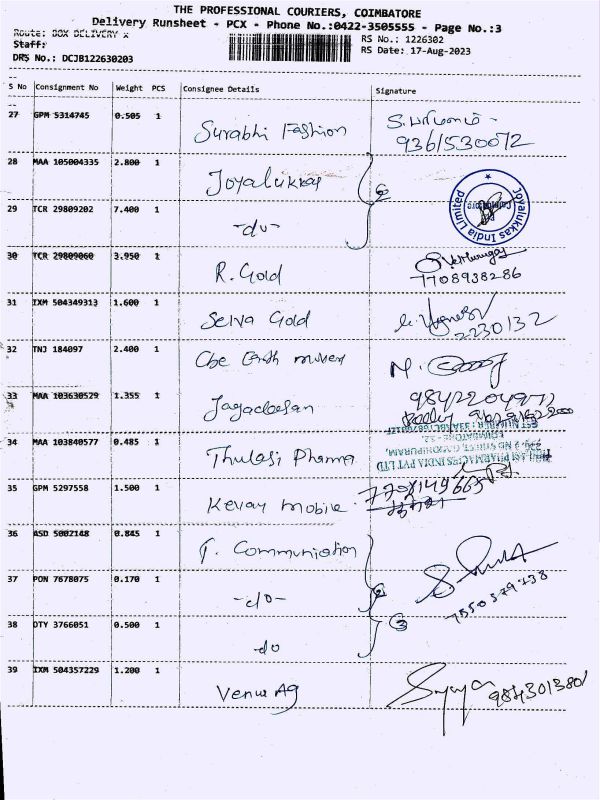 THE PROFESSIONAL COURIERS, COIMBATORE
Delivery Runsheet - PCX - Phone No.:0422-3505555 - Page No.:3
Route: BOX DELIVERY x
RS No.: 1226302
Staff:
RS Date: 17-Aug-2023
DRS No.: DCJB122630203
S No Consignment No Weight PCS Consignee Details Signature
27 GPM 5314745 0.505 1 Surabhi Fashion
9361530072
28 MAA 105004335 2.800 1 Joyalukkas
Joyalukkas India Limited
29 TCR 29809202 7.400 1 -do-
30 TCR 29809060 3.950 1 R. Gold
7708938286
31 IXM 504349313 1.600 1 Selva Gold
2230132
32 TNJ 184097 2.400 1 Cbe Earth movers
33 MAA 103630529 1.355 1 Jagadeesan
34 MAA 103840577 0.485 1 Thulasi Pharma
THULASI PHARMACIES INDIA PVT LTD
35 GPM 5297558 1.500 1 Kevay mobile
7708149665
36 ASD 5002148 0.845 1 T. Communication
37 PON 7678075 0.170 1 -do-
38 DTY 3766051 0.500 1 do
3
39 IXM 504357229 1.200 1 Venus Ag